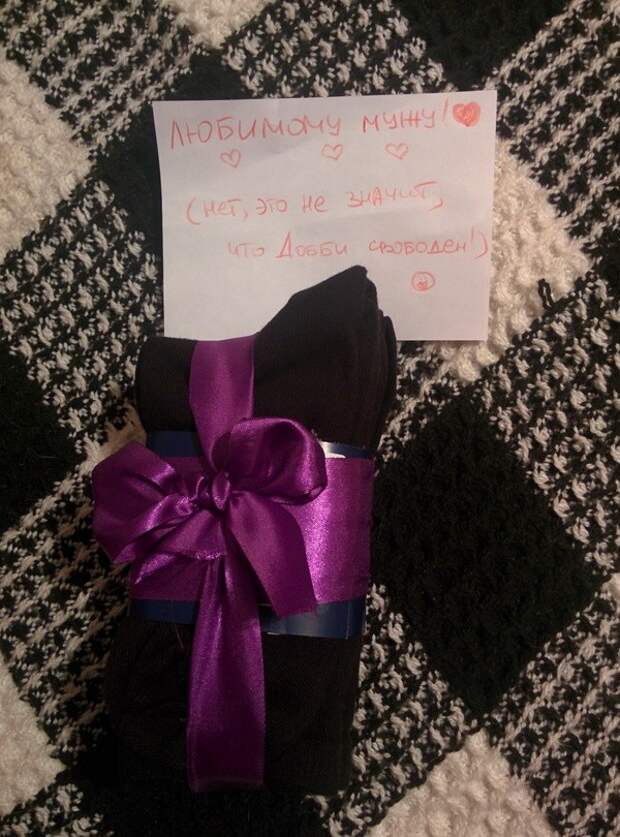 ЛЮБИМОМУ МУЖУ!
(НЕТ, ЭТО НЕ ЗНАЧИТ,
ЧТО ДОББИ СВОБОДЕН!)